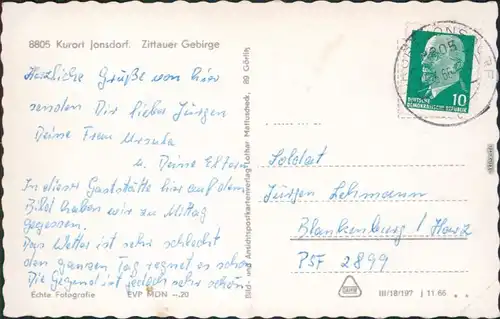 8805 Kurort Jonsdorf. Zittauer Gebirge
Herzliche Grüße von hier
senden Dir lieber Jürgen
Deine Frau Ursula
u. Deine Eltern
In dieser Gaststätte hier auf dem
Bild haben wir zu Mittag
gegessen.
Das Wetter ist sehr schlecht
den ganzen Tag regnet es schon
Die Gegend ist jedoch sehr schön.
Echte Fotografie EVP MDN -.20
Bild- und Ansichtspostkartenverlag Lothar Mattuscheck, 89 Görlitz
8805
10
DEUTSCHE
DEMOKRATISCHE REPUBLIK
Soldat
Jürgen Lehmann
Blankenburg / Harz
PSF 2899
III/18/197 J 11 66